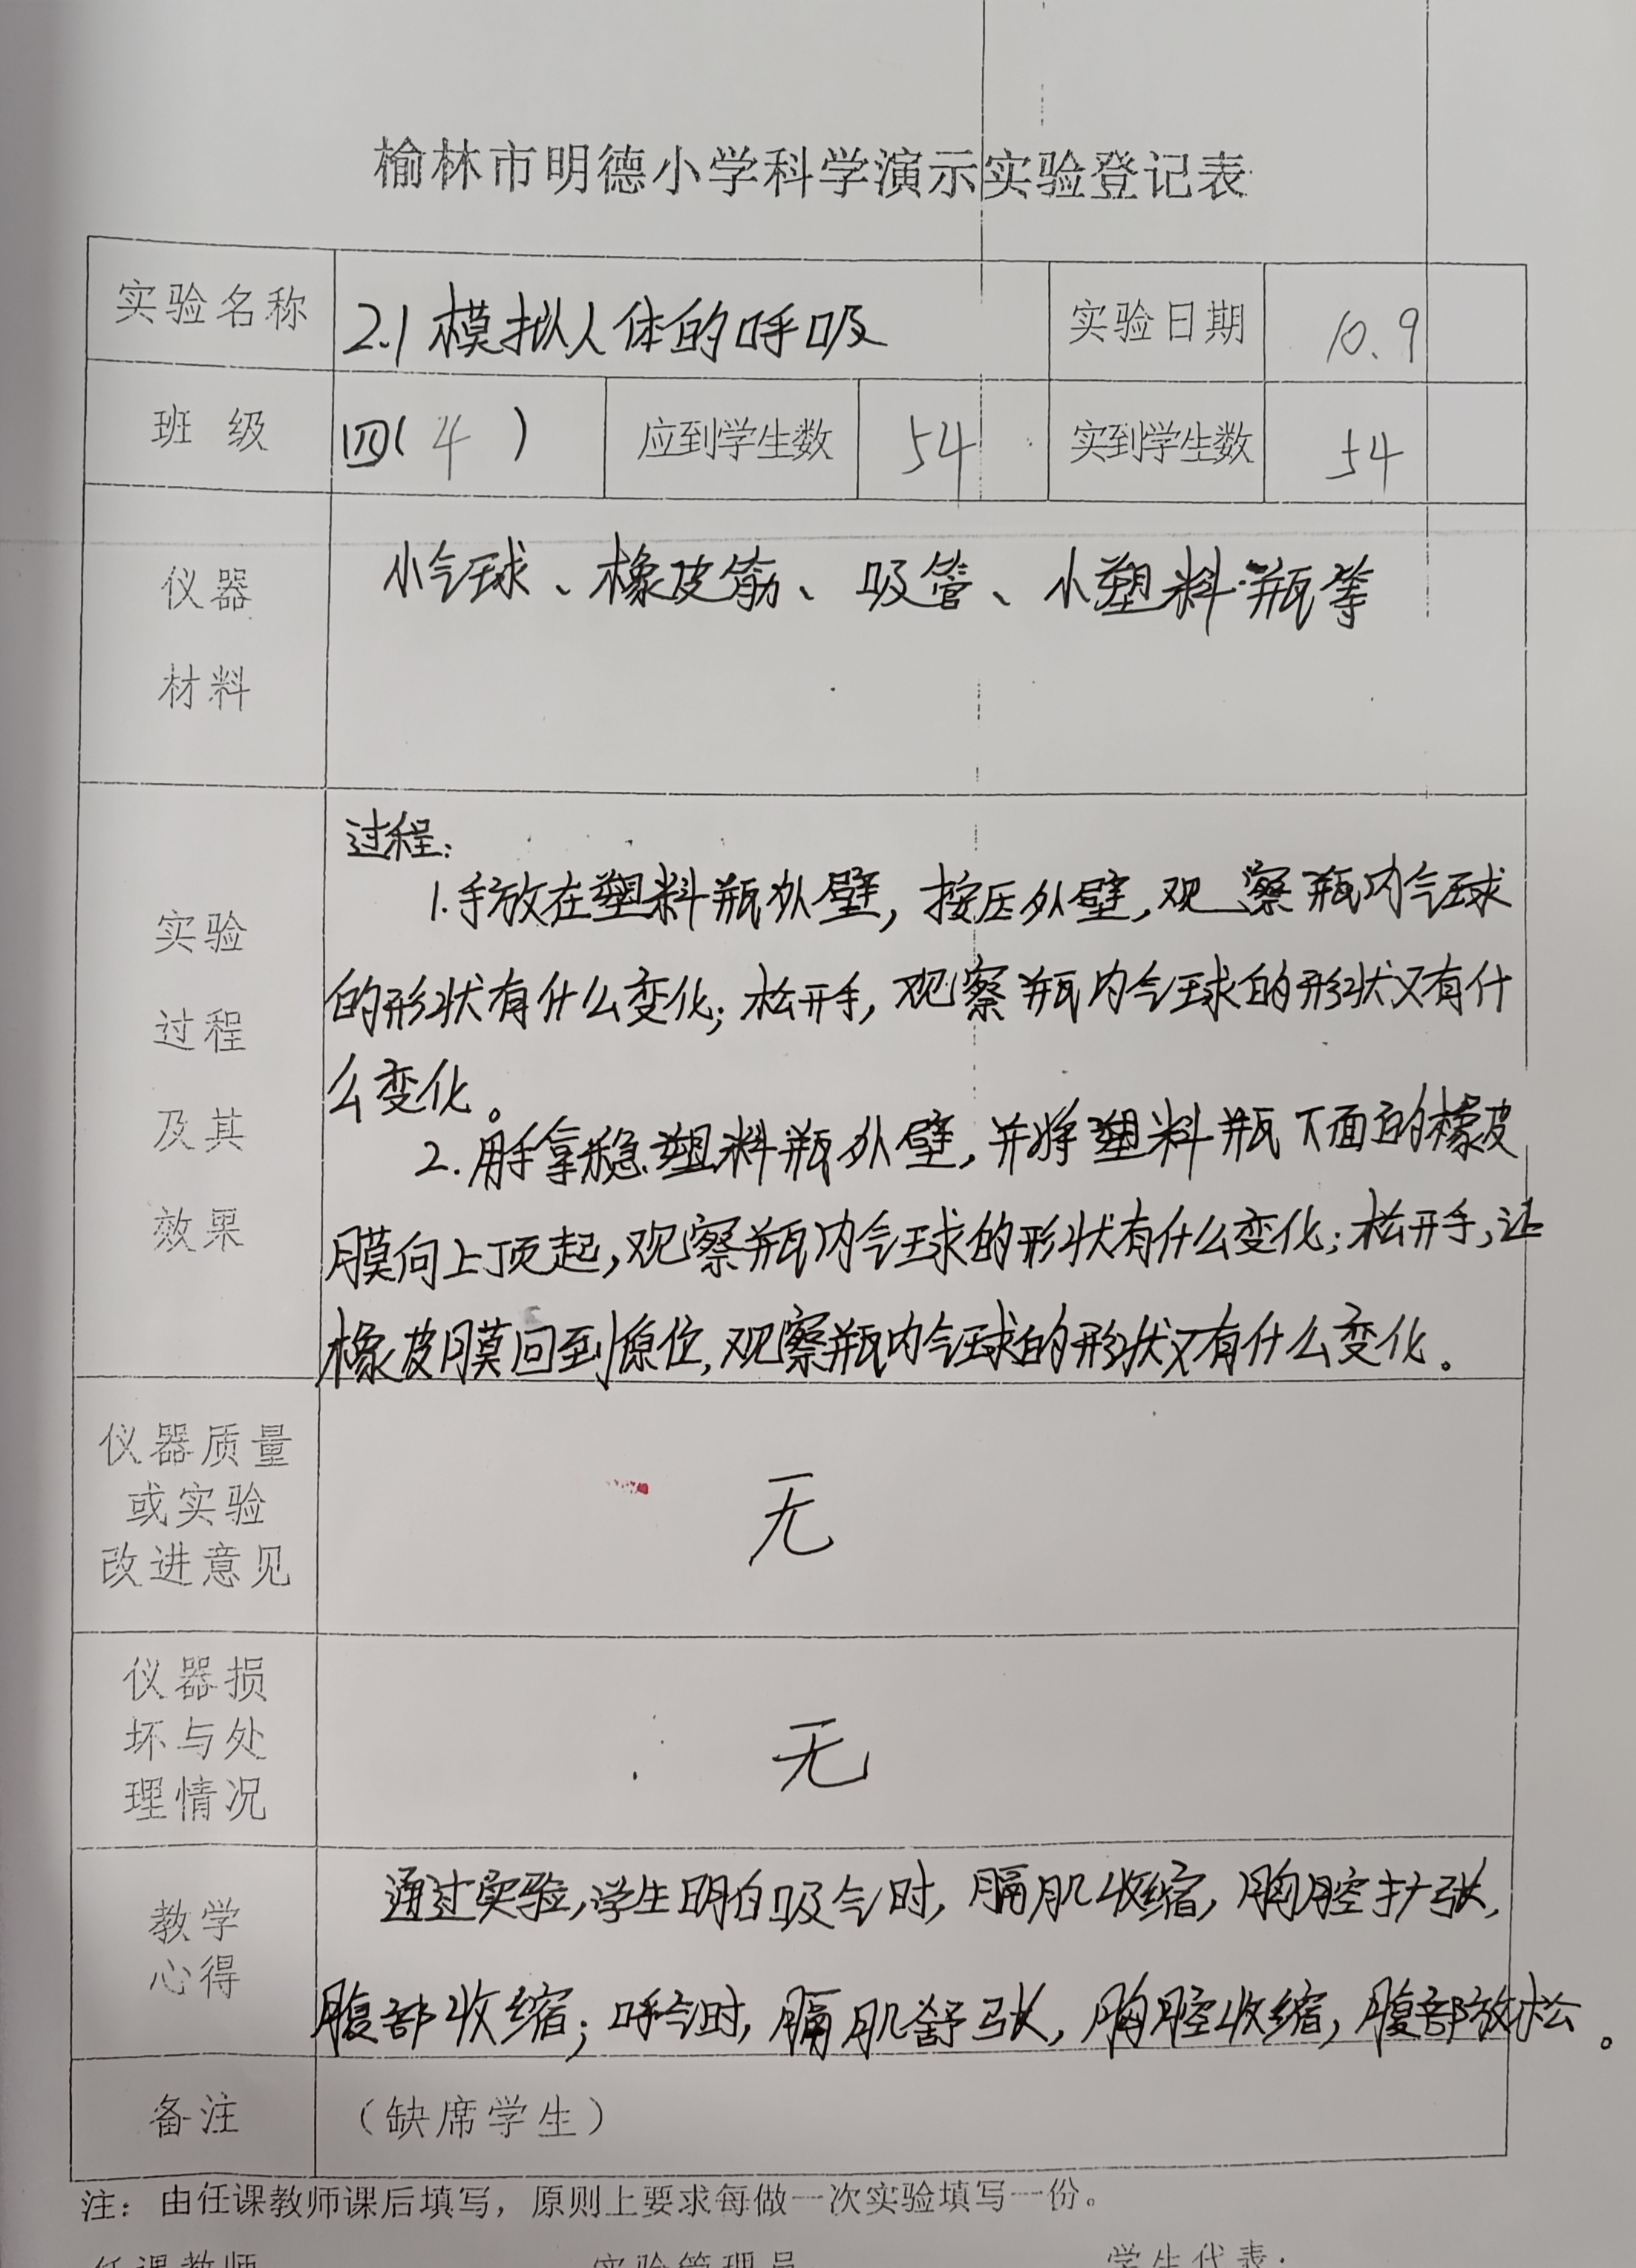 榆林市明德小学科学演示实验登记表
实验名称 2.1 模拟人体的呼吸 实验日期 10.9
班 级 四(4) 应到学生数 54 实到学生数 54
仪器
材料
小气球、橡皮筋、吸管、小塑料瓶等
实验
过程
及其
效果
过程:
1.手放在塑料瓶外壁,按压外壁,观察瓶内气球
的形状有什么变化;松开手,观察瓶内气球的形状又有什
么变化。
2.用手拿稳塑料瓶外壁,并将塑料瓶下面的橡皮
膜向上顶起,观察瓶内气球的形状有什么变化;松开手,让
橡皮膜回到原位,观察瓶内气球的形状又有什么变化。
仪器质量
或实验
改进意见
无
仪器损
坏与处
理情况
无
教学
心得
通过实验,学生明白吸气时,膈肌收缩,胸腔扩张,
腹部收缩;呼气时,膈肌舒张,胸腔收缩,腹部放松。
备注 (缺席学生)
注:由任课教师课后填写,原则上要求每做一次实验填写一份。
任课教师 实验管理员 学生代表: